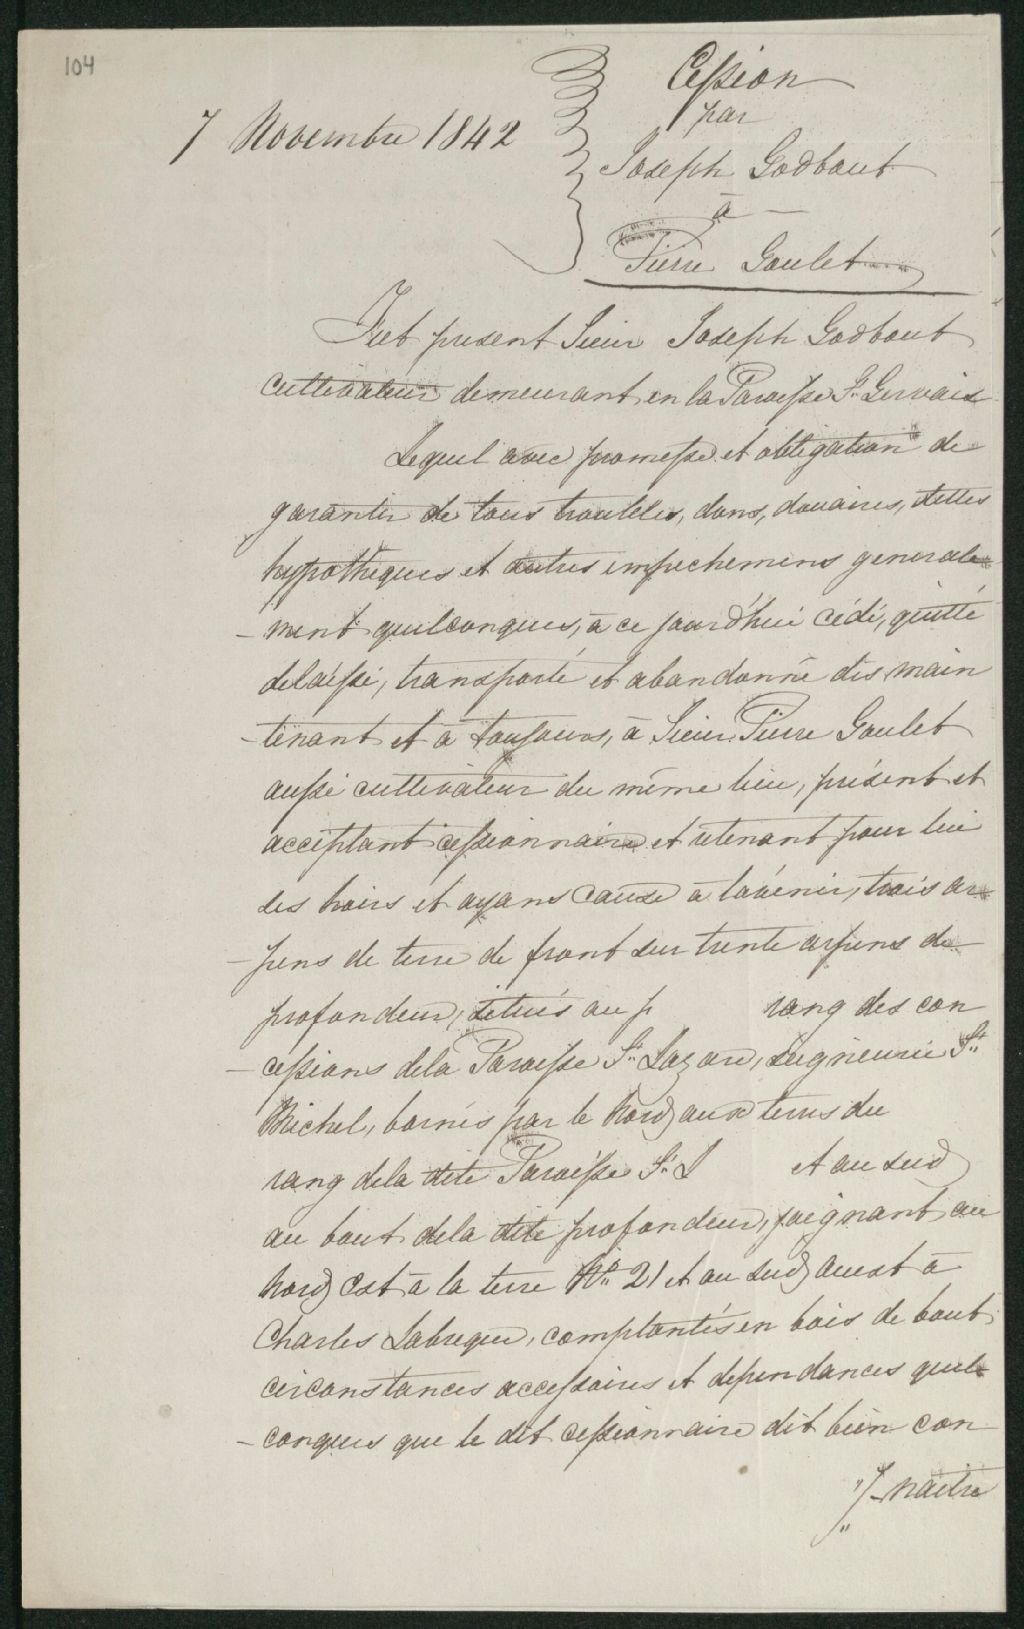 104
Cession
par
7 Novembre 1842
Joseph Godbout
à
Pierre Goulet
Fut present Sieur Joseph Godbout
cultivateur demeurant en la Paroisse St. Gervais
Lequel avec promesse et obligation de
garantir de tous troubles, dons, douaires, dettes
hypothèques et autres empechemens generale
- ment quelconques, à ce jourd'hui cédé, quitté
delaissé, transporté et abandonné dès main
- tenant et à toujours, à Sieur Pierre Goulet
aussi cultivateur du même lieu, présent et
acceptant cessionnaire et retenant pour lui
ses hoirs et ayans cause à l'avenir, trois ar
- pens de terre de front sur trente arpens de
profondeur, situés au p rang des con
- cessions de la Paroisse St. Lazare, seigneurie St.
Michel, bornés par le Nord aux terres du
rang de la dite Paroisse St. L et au sud
au bout de la dite profondeur, joignant au
Nord Est à la terre No. 21 et au sud ouest à
Charles Labreque, complantés en bois de bout
circonstances accessoires et dependances quel
- conques que le dit cessionnaire dit bien con
"/- naitre